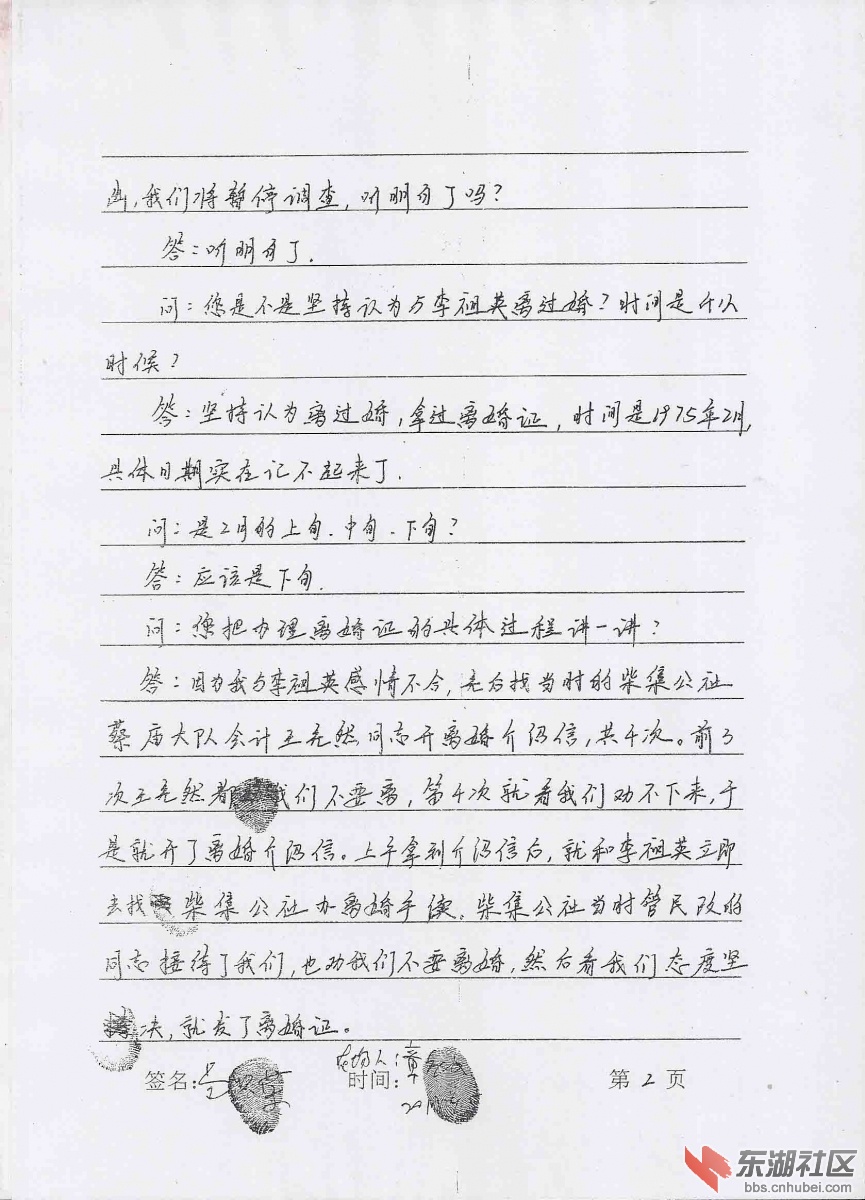 出,我们将暂停调查,听明白了吗?
答:听明白了.
问:您是不是坚持认为与李祖英离过婚?时间是什么
时候?
答:坚持认为离过婚,拿过离婚证,时间是1975年2月,
具体日期实在记不起来了.
问:是2月的上旬.中旬.下旬?
答:应该是下旬.
问:您把办理离婚证的具体过程讲一讲?
答:因为我与李祖英感情不合,先后找当时的柴集公社
蔡庙大队会计王先然同志开离婚介绍信,共4次。前3
次王先然都 我们不要离,第4次就看我们劝不下来,于
是就开了离婚介绍信。上午拿到介绍信后,就和李祖英立即
去找 柴集公社办离婚手续。柴集公社当时管民政的
同志接待了我们,也劝我们不要离婚,然后看我们态度坚
决,就发了离婚证。
签名: 在场人:章
时间:
第2页
东湖社区
bbs.cnhubei.com